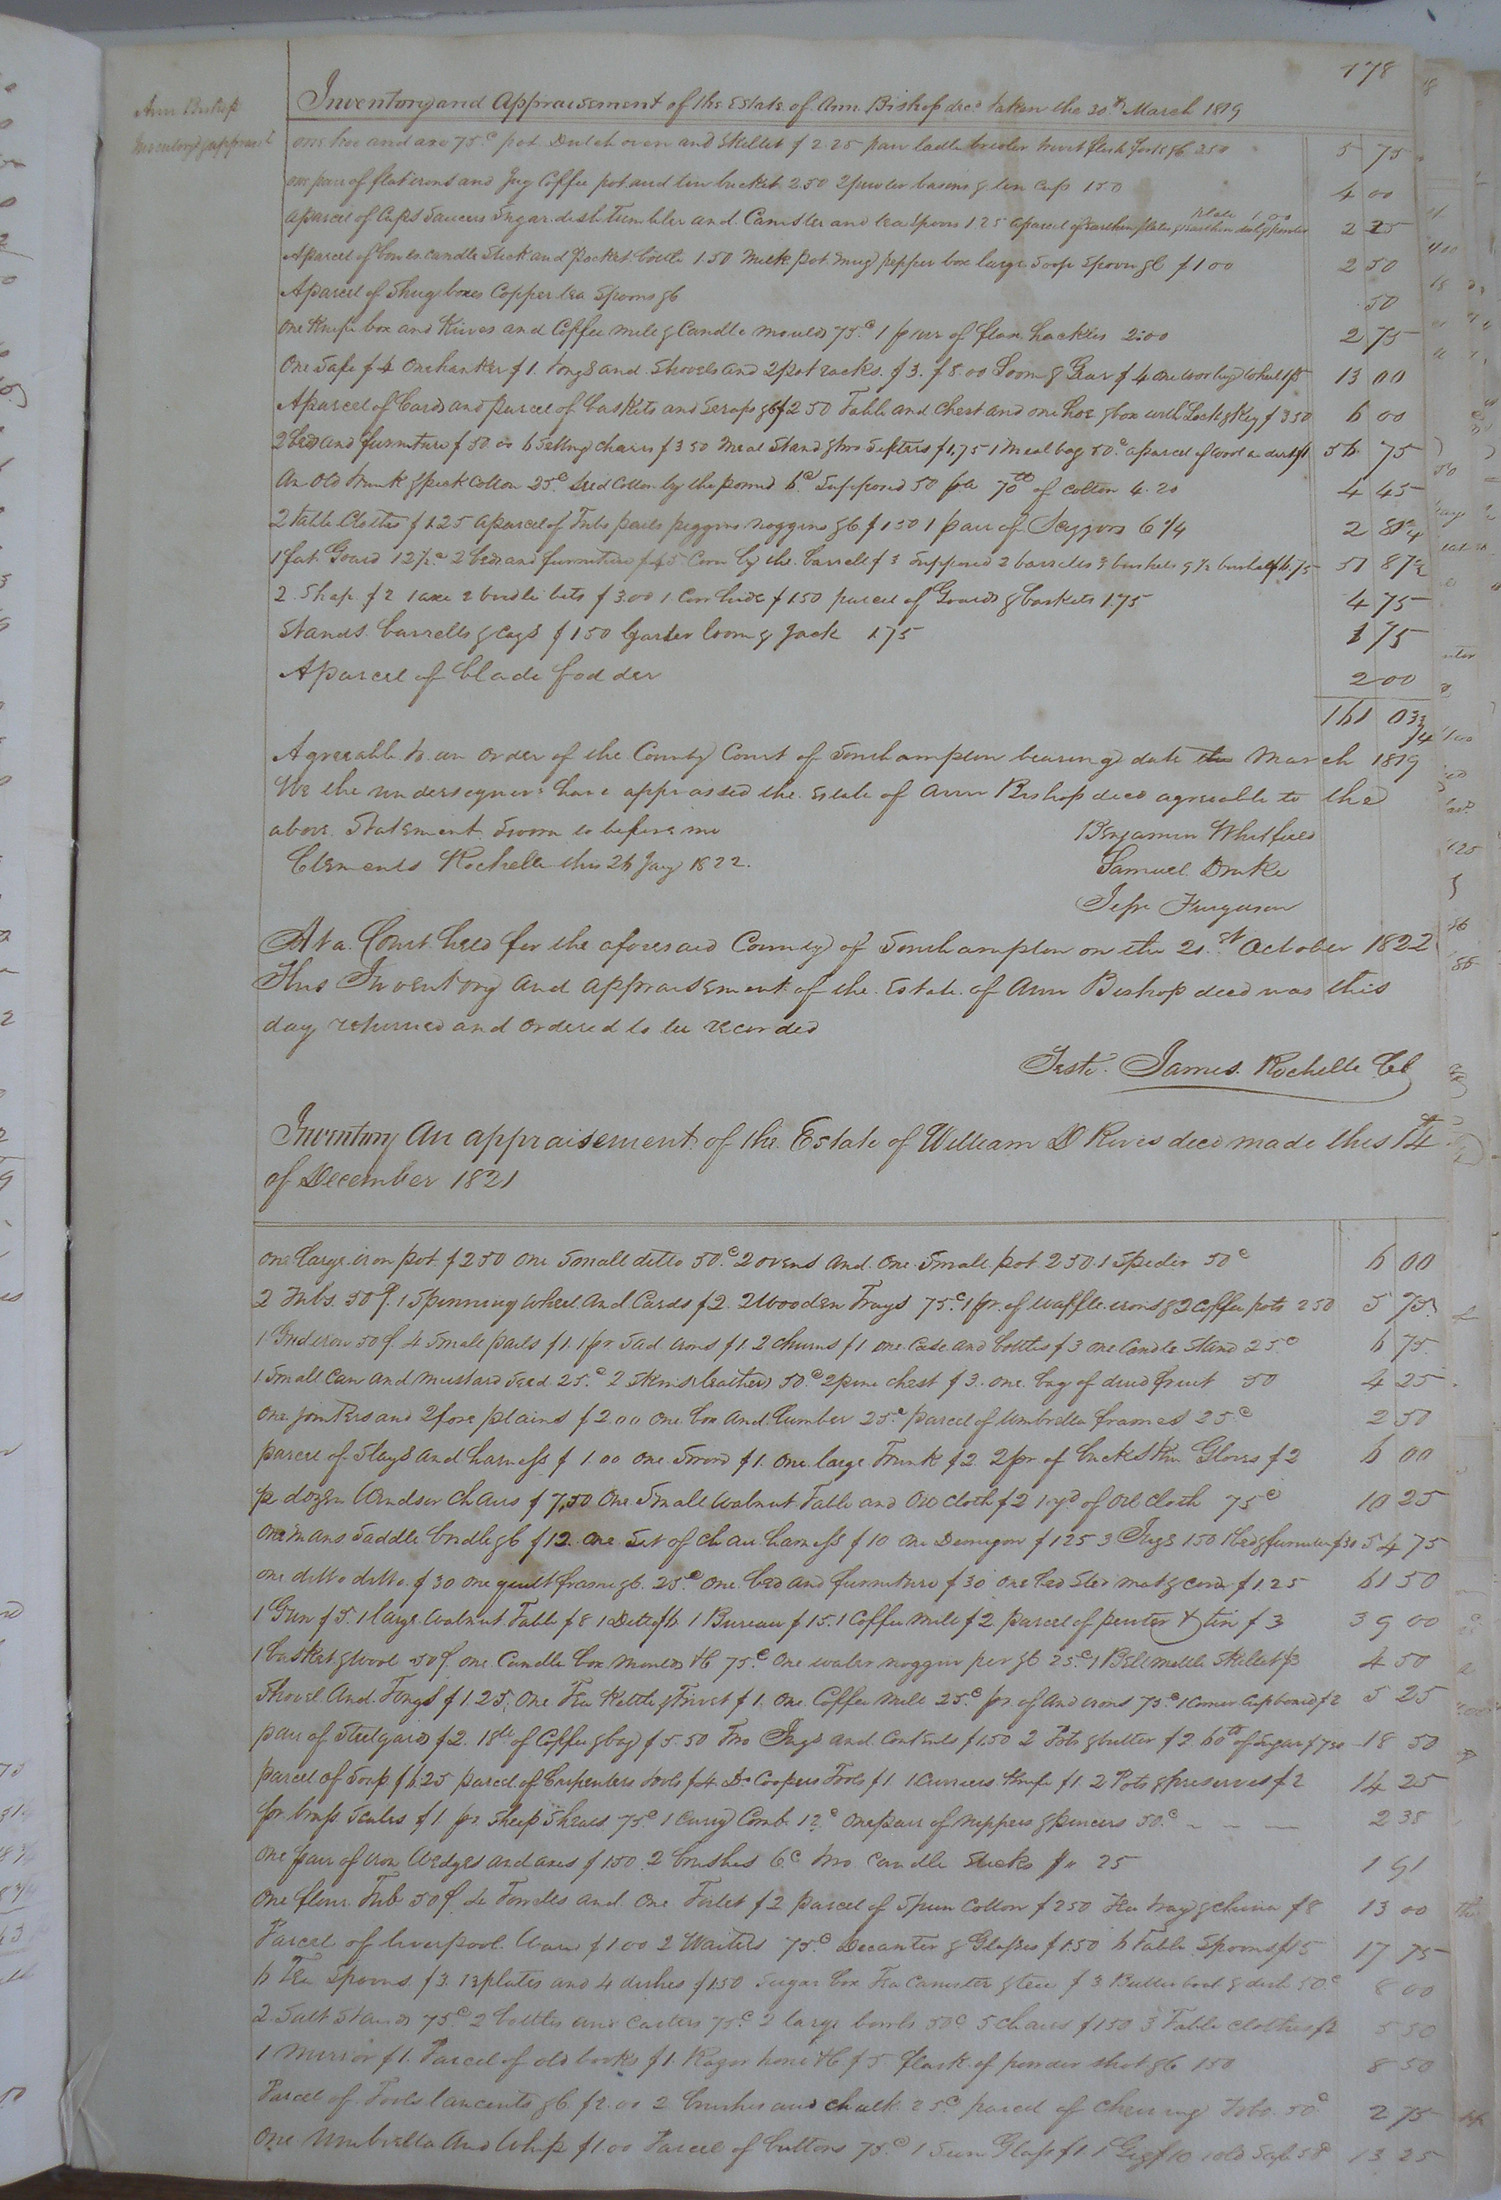 178
Ann Bishop
Inventory & appraist
Inventory and Appraisement of the Estate of Ann Bishop decd taken the 30th March 1819
one hoe and axe 75c pot Dutch oven and Skillet $2.25 pair ladle trivet flesh fork &c 2.50 5 75
one pair of flat irons and Jug Coffee pot and tin bucket 2.50 2 pewter basons & tin cup 150 4 00
A parcel of Cups Saucers Sugar dish Tumbler and Canister and tea spoons 1.25 A parcel of Earthen plates & Earthen dish & pewter plate 1.00 2 25
A parcel of bowls candle stick and pocket bottle 1.50 Milk pot mug pepper box large Soop Spoon &c $1 00 2 50
A parcel of boxes Copper tea Spoons &c 50
One Knife box and Knives and Coffee mill & Candle moulds 75c 1 pair of flax hackles 2.00 2 75
One Safe $4 One hanker $1. tongs and Shovels and 2 pot racks $3. $8.00 Loom & Gear $4 one woolen wheel 1$ 13 00
A parcel of Cards and parcel of baskets and Scraps &c $2 50 Table and Chest and one box with Lock & Key $3 50 6 00
2 beds and furniture $50 00 6 Setting chairs $3 50 Meal Stand & two Sifters $1,75 1 Meal bag 50c a parcel of wool 56 75
An old trunk & pick Cotton 25c Seed Cotton by the pound 6c Supposed 50 70lb of Cotton 4.20 4 45
2 table Cloths $1.25 A parcel of Tubs pails piggins noggins &c $1 50 1 pair of 6 1/4 2 81 1/4
1 fat Gourd 12 1/2c 2 beds and furniture $45 Corn by the barrell $3 Supposed 2 barrells 3 bushels & 1/2 bushel $6.75 51 87 1/2
2 $2 1 axe 2 bridle bits $3.00 1 Cow hide $1.50 parcel of Gourds & baskets 1.75 4 75
Stands barrells & cags $1 50 loom & Jack 1.75 1 75
A parcel of blade fodder 2 00
161 03 3/4
Agreeable to an order of the County Court of Southampton bearing date March 1819
We the undersigners have appraised the Estate of Ann Bishop decd agreeable to the
above Statement Sworn to before me Benjamin Whitfield
Clements Rochelle this 26 Jany 1822. Samuel Drake
Jesse Ferguson
At a Court held for the aforesaid County of Southampton on the 21st October 1822
This Inventory and appraisement of the Estate of Ann Bishop decd was this
day returned and ordered to be recorded
Teste James Rochelle Cl
Inventory An appraisement of the Estate of William D Rives decd made this 14
of December 1821
one large iron pot $2 50 one Small ditto 50c 2 ovens and one Small pot 2 50. 1 Speder 50c 6 00
2 Tubs 50c. 1 Spinning wheel and Cards $2. 2 Wooden Trays 75c 1 pr of waffle irons & 2 coffee pots 2 50 5 75
1 Gridiron 50c. 4 Small pails $1. 1 pr Sad irons $1. 2 churns $1 one Case and bottles $3 one Candle Stand 25c 6 75
1 Small Can and mustard Seed 25c 2 Skins leather 50c 2 pine chest $3. one bag of dried fruit 50 4 25
one jointers and 2 fore plains $2.00 one box and lumber 25c parcel of umbrella frames 25c 2 50
parcel of Slays and harness $1.00 one Sword $1. One large Trunk $2 2 pr of buckskin Gloves $2 6 00
1/2 dozen Windsor Chairs $7,50 One Small walnut Table and Oil Cloth $2 1 yd of oil cloth 75c 10 25
one mans Saddle bridle &c $12. one Set of chair harness $10 one Demijon $1 25 3 Jugs 1 50 1 bed & furniture $30 54 75
one ditto ditto $30 one quilt frame &c 25c one bed and furniture $30 one bed Sted mat & cord $1.25 61 50
1 Gun $5. 1 large walnut Table $8 1 Ditto $6 1 Bureau $15. 1 Coffee mill $2 parcel of pewter & tin $3 39 00
1 basket & wool 50c one Candle box moulds &c 75c one water noggin &c 25c 1 Bell mettle Skillet $3 4 50
Shovel And Tongs $1 25. One Tea Kettle & Trivet $1. one Coffee Mill 25c pr of And irons 75c 1 Corner Cupboard $2 5 25
pair of Steelyards $2. 18lb of Coffee & bag $5.50 Two Jugs and Contents $1.50 2 Pots & butter $2 60lb of Sugar $7.50 18 50
parcel of Soap $6.25 parcel of Carpenters tools $4 Do Coopers Tools $1 1 Curriers Knife $1. 2 Pots & preserves $2 14 25
pr brass Scales $1 pr Sheep Shears 75c 1 Curry Comb 12c one pair of nippers & pincers 50c 2 38
One pair of iron Wedges and axes $1 50 2 brushes 6c two Candle Sticks $" 25 1 91
One flour Tub 50c 6 Towels and One Toilet $2 parcel of Spun Cotton $2 50 Tea tray & china $8 13 00
Parcel of liverpool Ware $1 00 2 Waiters 75c Decanter & Glasses $1.50 6 Table Spoons $15 17 75
6 Tea Spoons $3. 13 plates and 4 dishes $1.50 Sugar box Tea Canister & tea $3 Butter boat & dish 50c 8 00
2 Salt Stands 75c 2 bottles and casters 75c 2 large bowls 50c 5 chairs $1 50 3 Table clothes $2 5 50
1 Mirror $1. Parcel of old books $1. Razor hone &c $5 flask of powder shot &c 1 50 8 50
Parcel of Tools lancents &c $2.00 2 brushes and chalk 25c parcel of chewing Tobo 50c 2 75
One Umbrella And Whip $1.00 Parcel of buttons 75c 1 Sun Glass $1 1 Gig $10 1 old Safe 50c 13 25